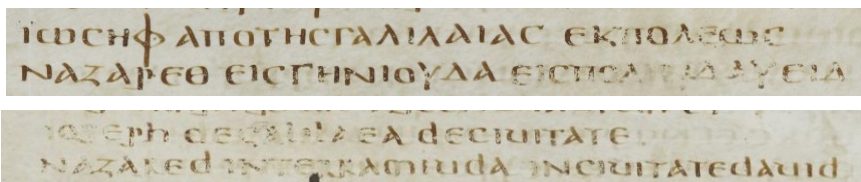 ΪωϲΗΦ ΑΠΟΤΗϹΓΑΛΙΛΑΙΑϹ ΕΚΠΟΛΕΩϹ
ΝΑΖΑΡΕΘ ΕΙϹΓΗΝΙΟΥΔΑ ΕΙϹΠΟΛΙΝΔΑΥΕΙΔ
IOSEPh DEGALILAEA DECIUITATE
NAZARED INTERRAMIUDA INCIUITATEDAUID